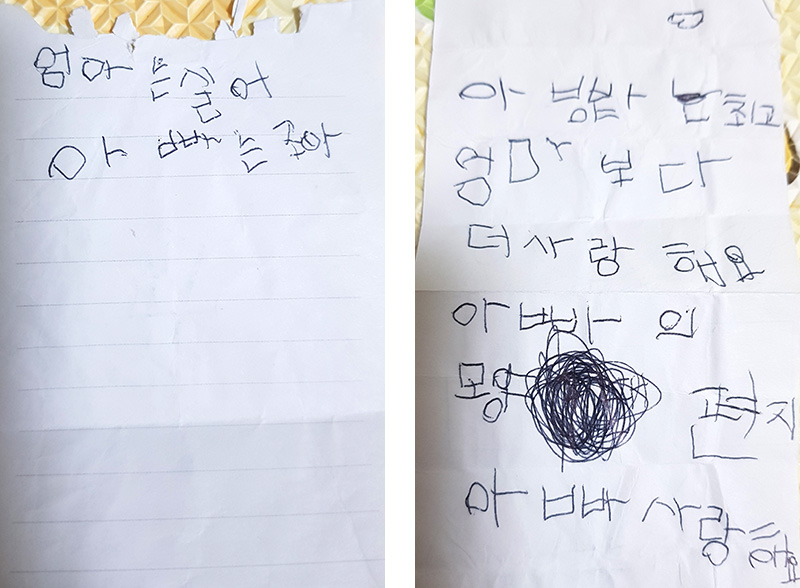 엄아 는 실어
아 빠 는 조아
아 최고
엄마 보다
더 사랑 해요
아빠 의
몽 편지
아빠 사랑해요